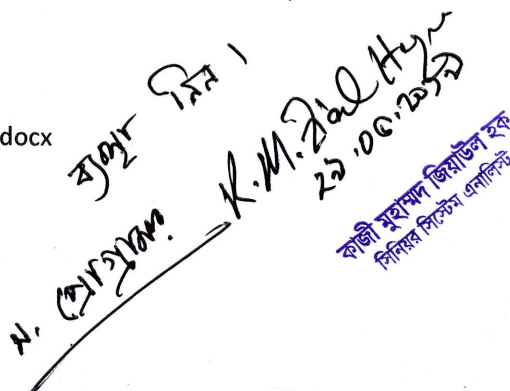 docx
ব্যবস্থা নিন।
K.M. Ziaul Haque
২৯.০৫.২০১৯
কাজী মুহাম্মদ জিয়াউল হক
সিনিয়র সিস্টেম এনালিস্ট